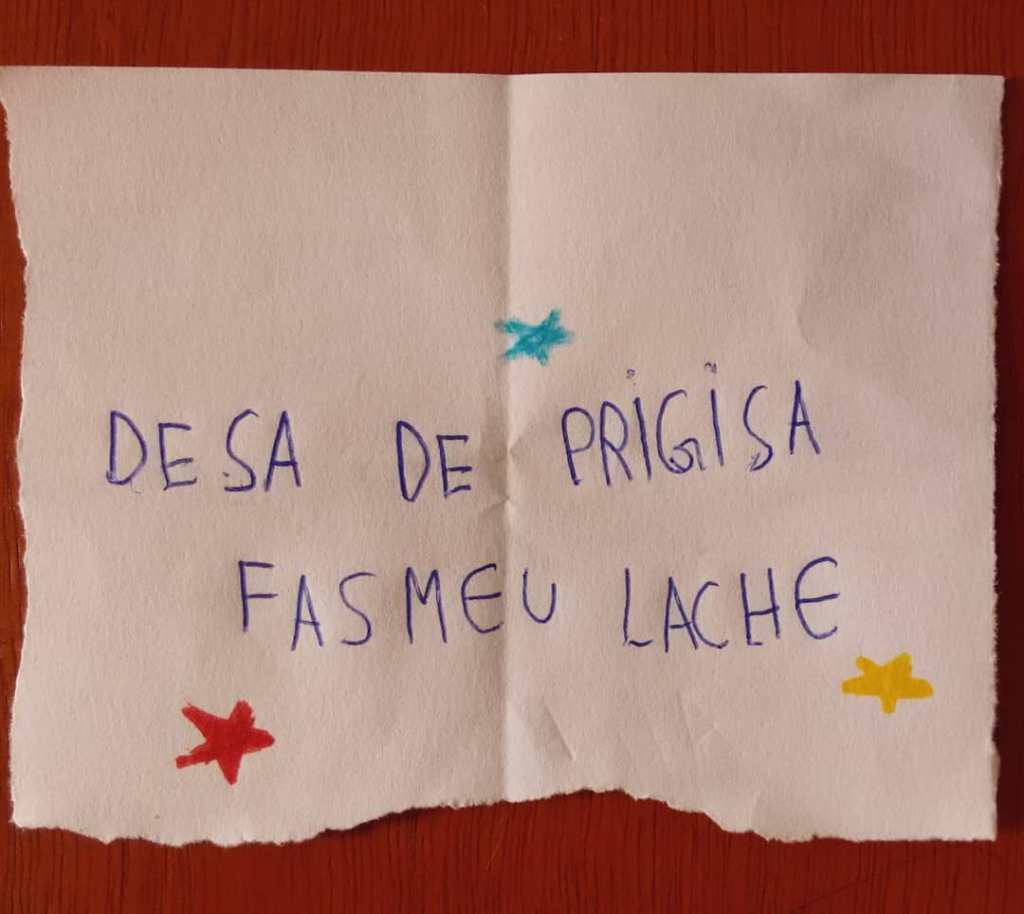 DESA DE PRIGISA
FAS MEU LACHE